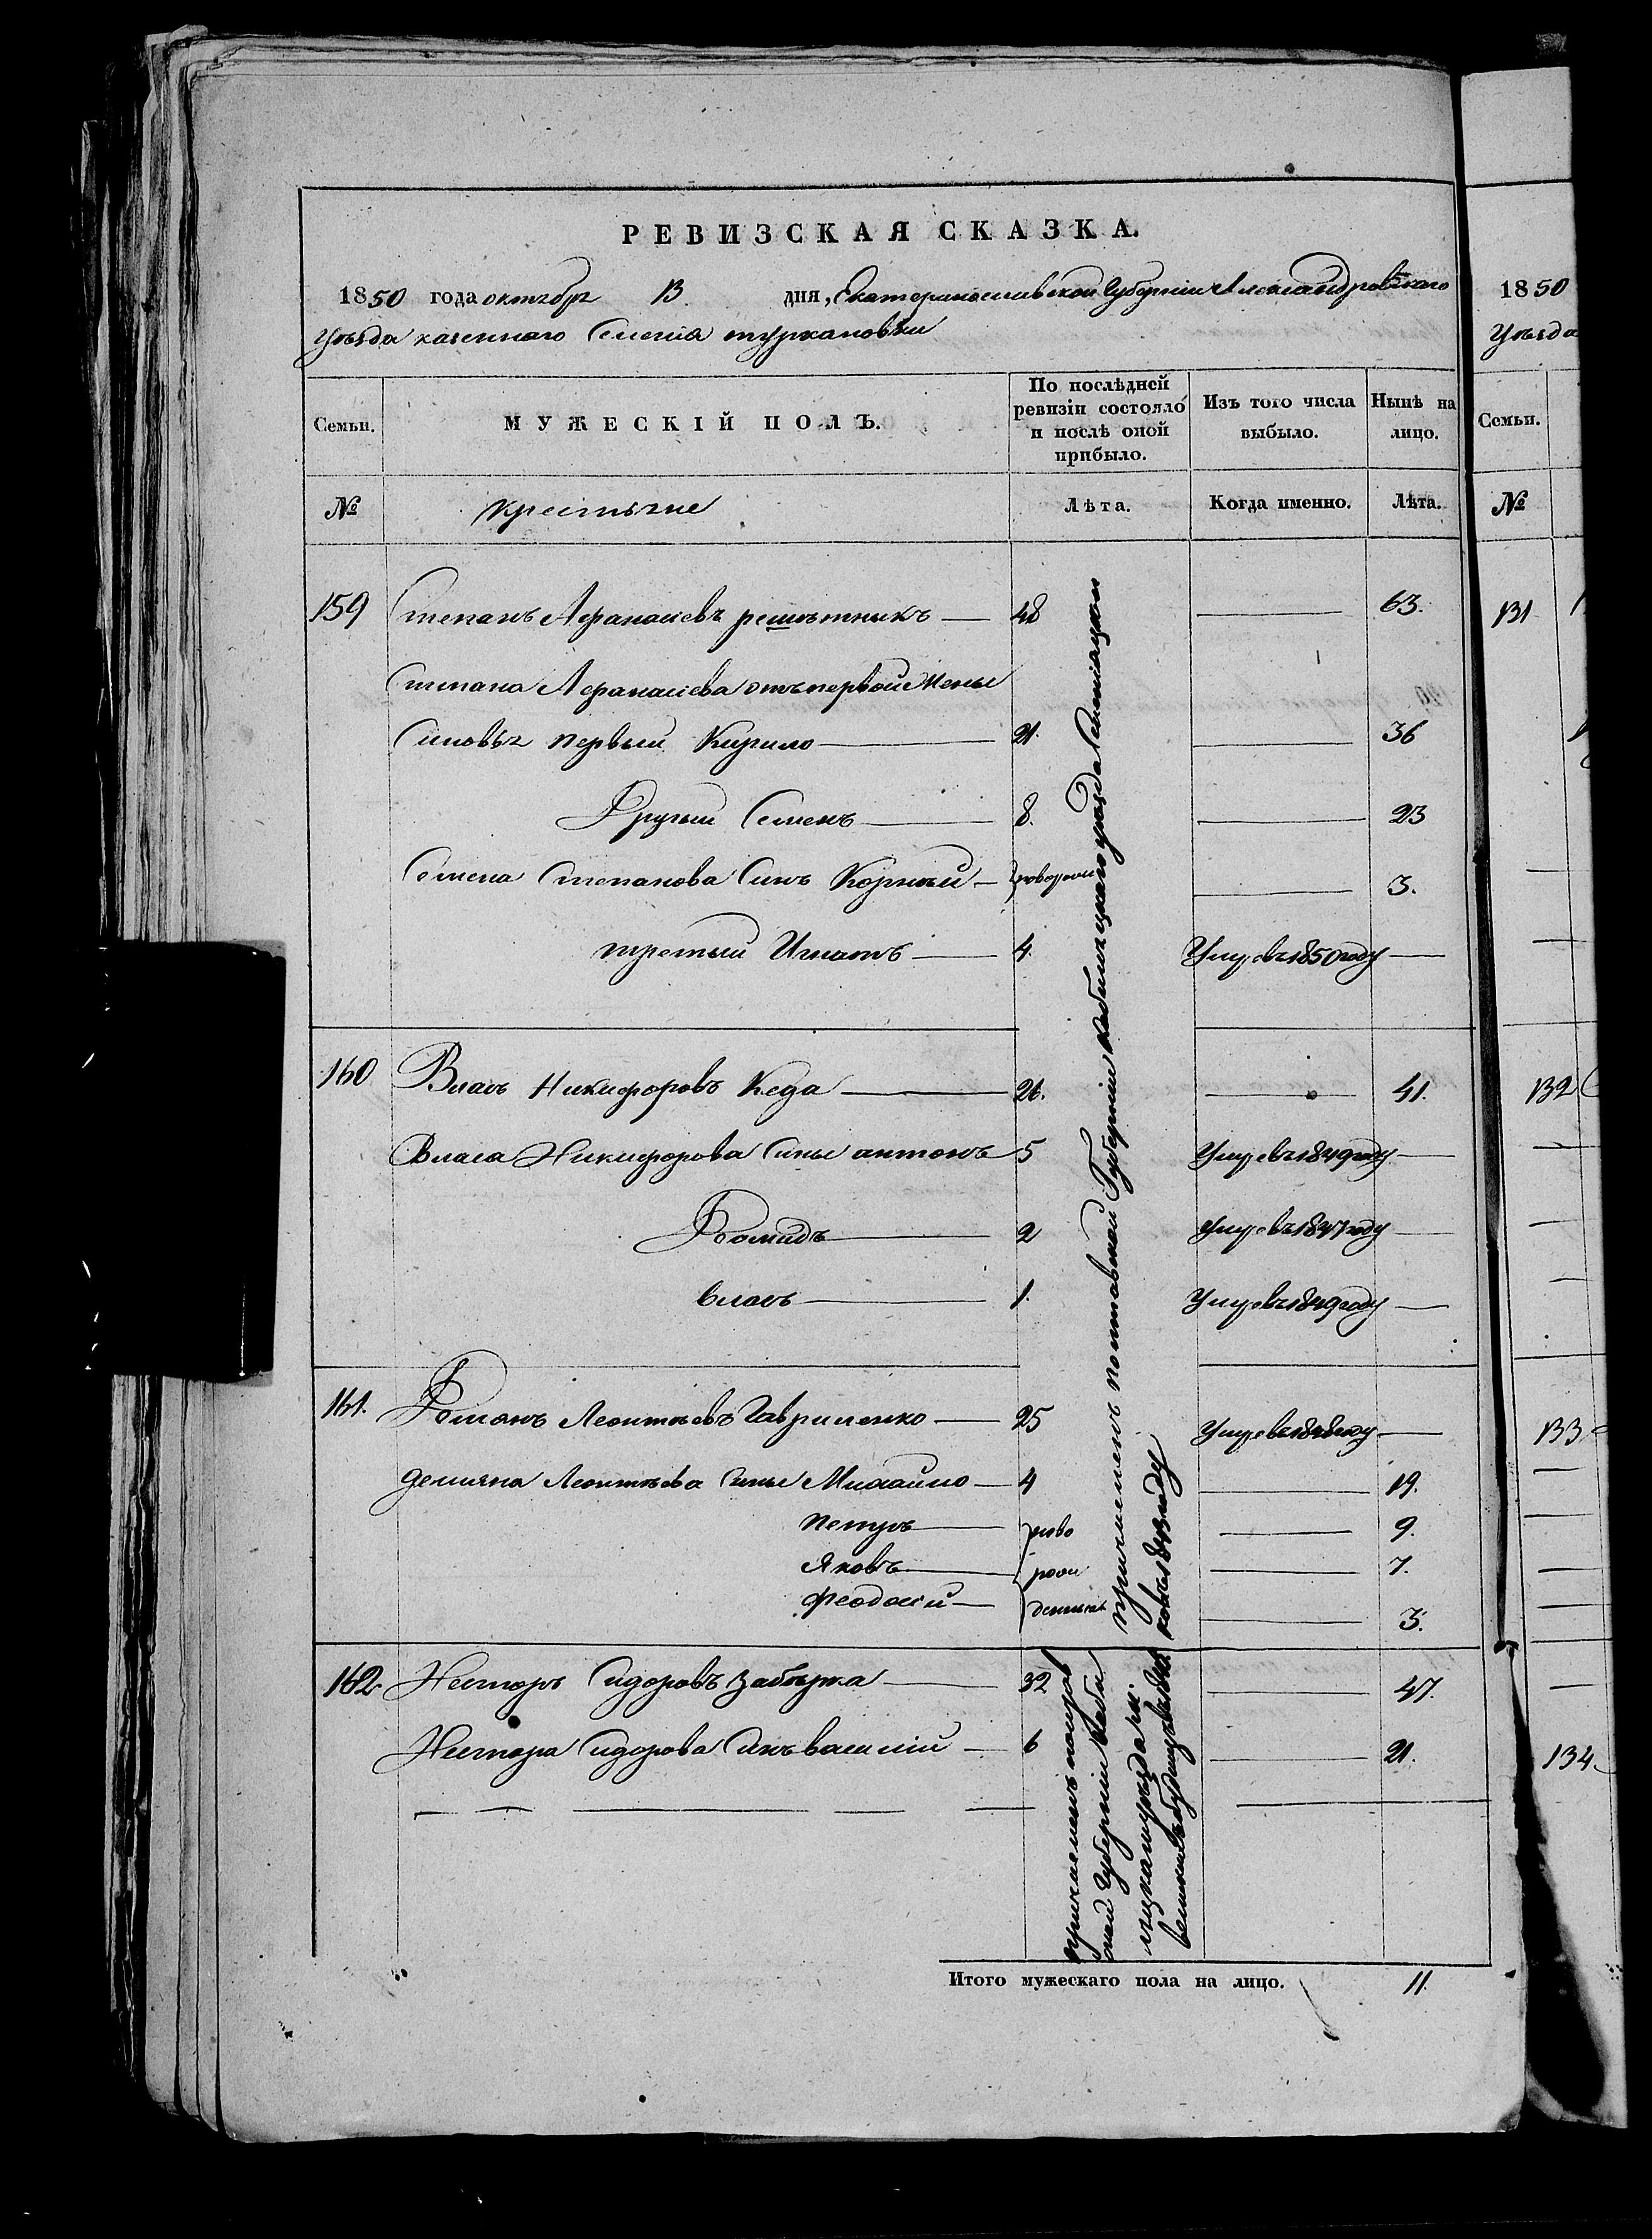 РЕВИЗСКАЯ СКАЗКА.
1850 года октября 13 дня, Екатеринославской Губернии Александровскаго
уѣзда казеннаго Селенія туркановки
Семьи.
МУЖЕСКІЙ ПОЛЪ.
По послѣдней ревизіи состояло и послѣ оной прибыло.
Изъ того числа выбыло.
Нынѣ на лицо.
№
крестьяне
Лѣта.
Когда именно.
Лѣта.
159 Степанъ Афанасіевъ решетникъ — 48 — 63.
Степана Афанасіева отъ первой жены
Синовья первый Кирило — 21. — 36
Другий Семенъ — 8. — 23
Семена Степанова Синъ Корней — новорожд — 3.
третий Игнатъ — 4. Умре въ 1850 году —
160 Власъ Никифоровъ Кеда — 26. — 41.
Власа Никифорова Сины антонъ 5 Умре въ 1849 году —
Домидъ — 2 Умре въ 1847 году —
власъ — 1. Умре въ 1849 году —
161. Демянъ Леонтьевъ Гавриленко — 25 Умре въ 1848 году —
демияна Леонтьева Сины Михайло — 4 — 19.
петръ — ново — 9.
Яковъ — рожд — 7.
феодосій — 3.
причисленъ полтавской Губернии Кобеляцкаго уезда
въ 1843 году
162. Несторъ Сидоровъ забѣрка — 32 — 47.
Нестора Сидорова Синъ василій — 6 — 21.
причисленъ полтав
ской Губернии Кобе
ляцкаго уезда
Итого мужескаго пола на лицо. 11.
1850
Уѣзда
Семьи.
№
131
132
133
134